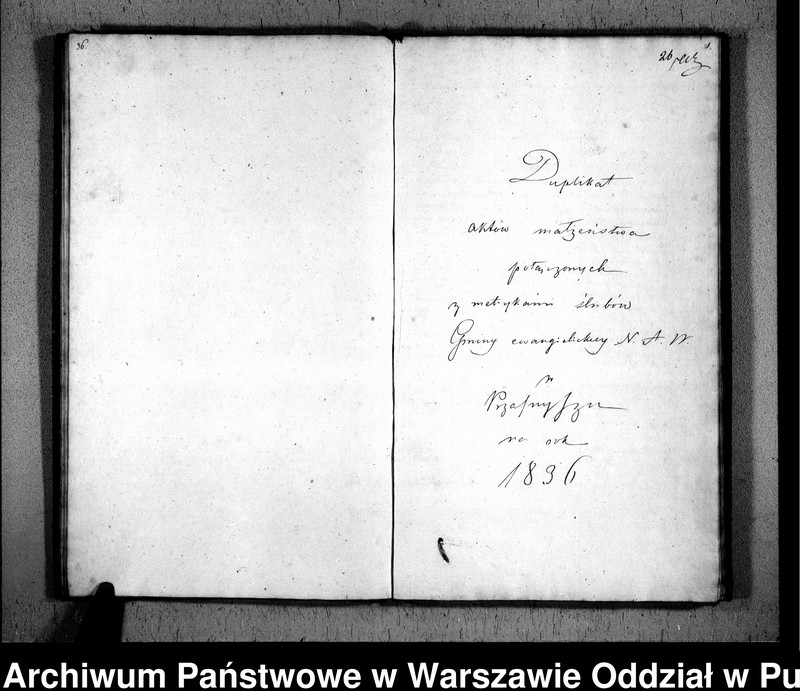 36
1.
26
Duplikat
aktów małżeństwa
połączonych
z metrykami ślubów
Gminy ewangelickiey N. A. W.
w
Przasnyszu
na rok
1836
Archiwum Państwowe w Warszawie Oddział w Pu